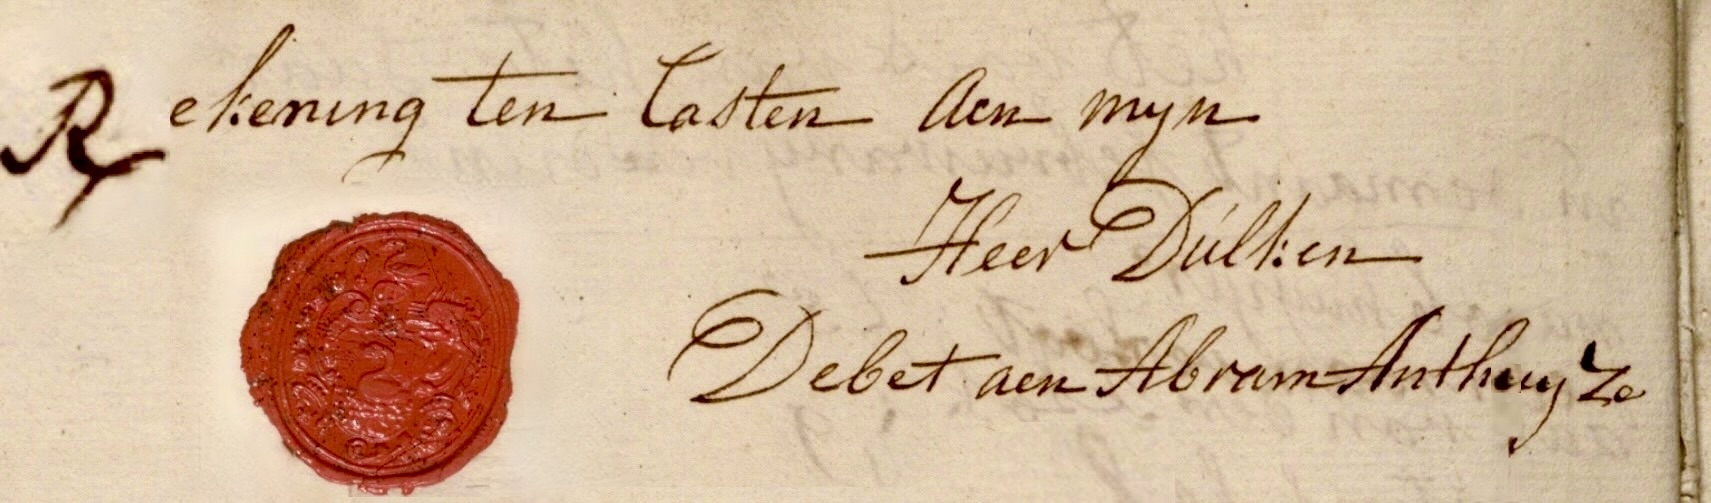 Rekening ten Casten Aen myn
Heer Dúlken
Debet aen Abram Anthuyze